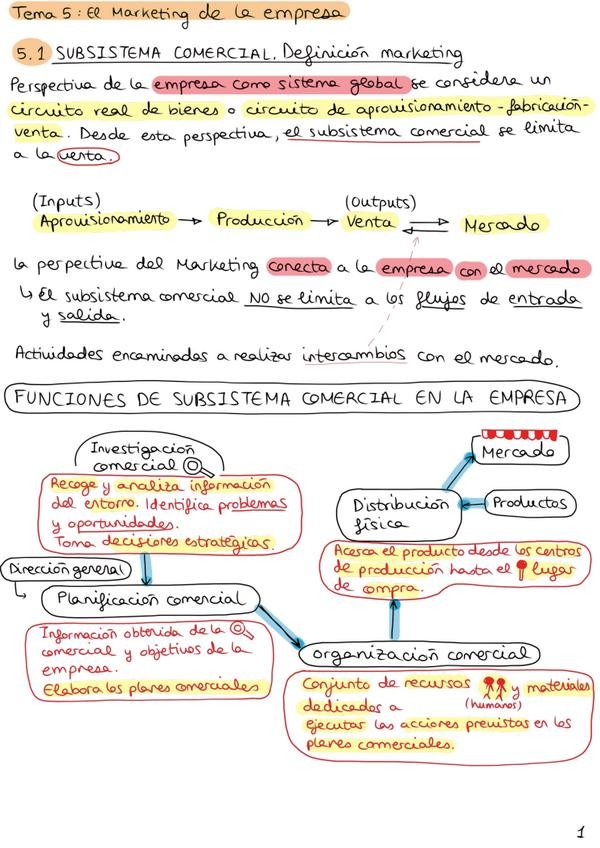 Tema 5: El Marketing de la empresa
5.1 SUBSISTEMA COMERCIAL. Definición marketing
Perspectiva de la empresa como sistema global se considera un
circuito real de bienes o circuito de aprovisionamiento-fabricación-
venta. Desde esta perspectiva, el subsistema comercial se limita
a la venta.
(Inputs) (Outputs)
Aprovisionamiento → Producción → Venta ⇄ Mercado
la perpectiva del Marketing conecta a la empresa con el mercado
↳ El subsistema comercial NO se limita a los flujos de entrada
y salida.
Actividades encaminadas a realizar intercambios con el mercado.
FUNCIONES DE SUBSISTEMA COMERCIAL EN LA EMPRESA
Investigación
comercial
Recoge y analiza información
del entorno. Identifica problemas
y oportunidades.
Toma decisiones estratégicas.
Mercado
Distribución
física
Productos
Acerca el producto desde los centros
de producción hasta el lugar
de compra.
Dirección general
Planificación comercial
Información obtenida de la
comercial y objetivos de la
empresa.
Elabora los planes comerciales
organización comercial
Conjunto de recursos y materiales
(humanos)
dedicados a
ejecutar las acciones previstas en los
planes comerciales.
1